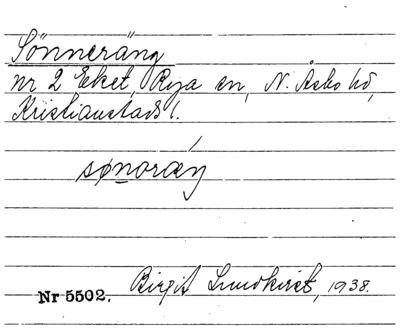 Sönneräng
nr 2 Eket, Rya sn, N. Åsbo hd,
Kristianstads l.
sønoræŋ
Nr 5502. Birgit Lundkvist, 1938.